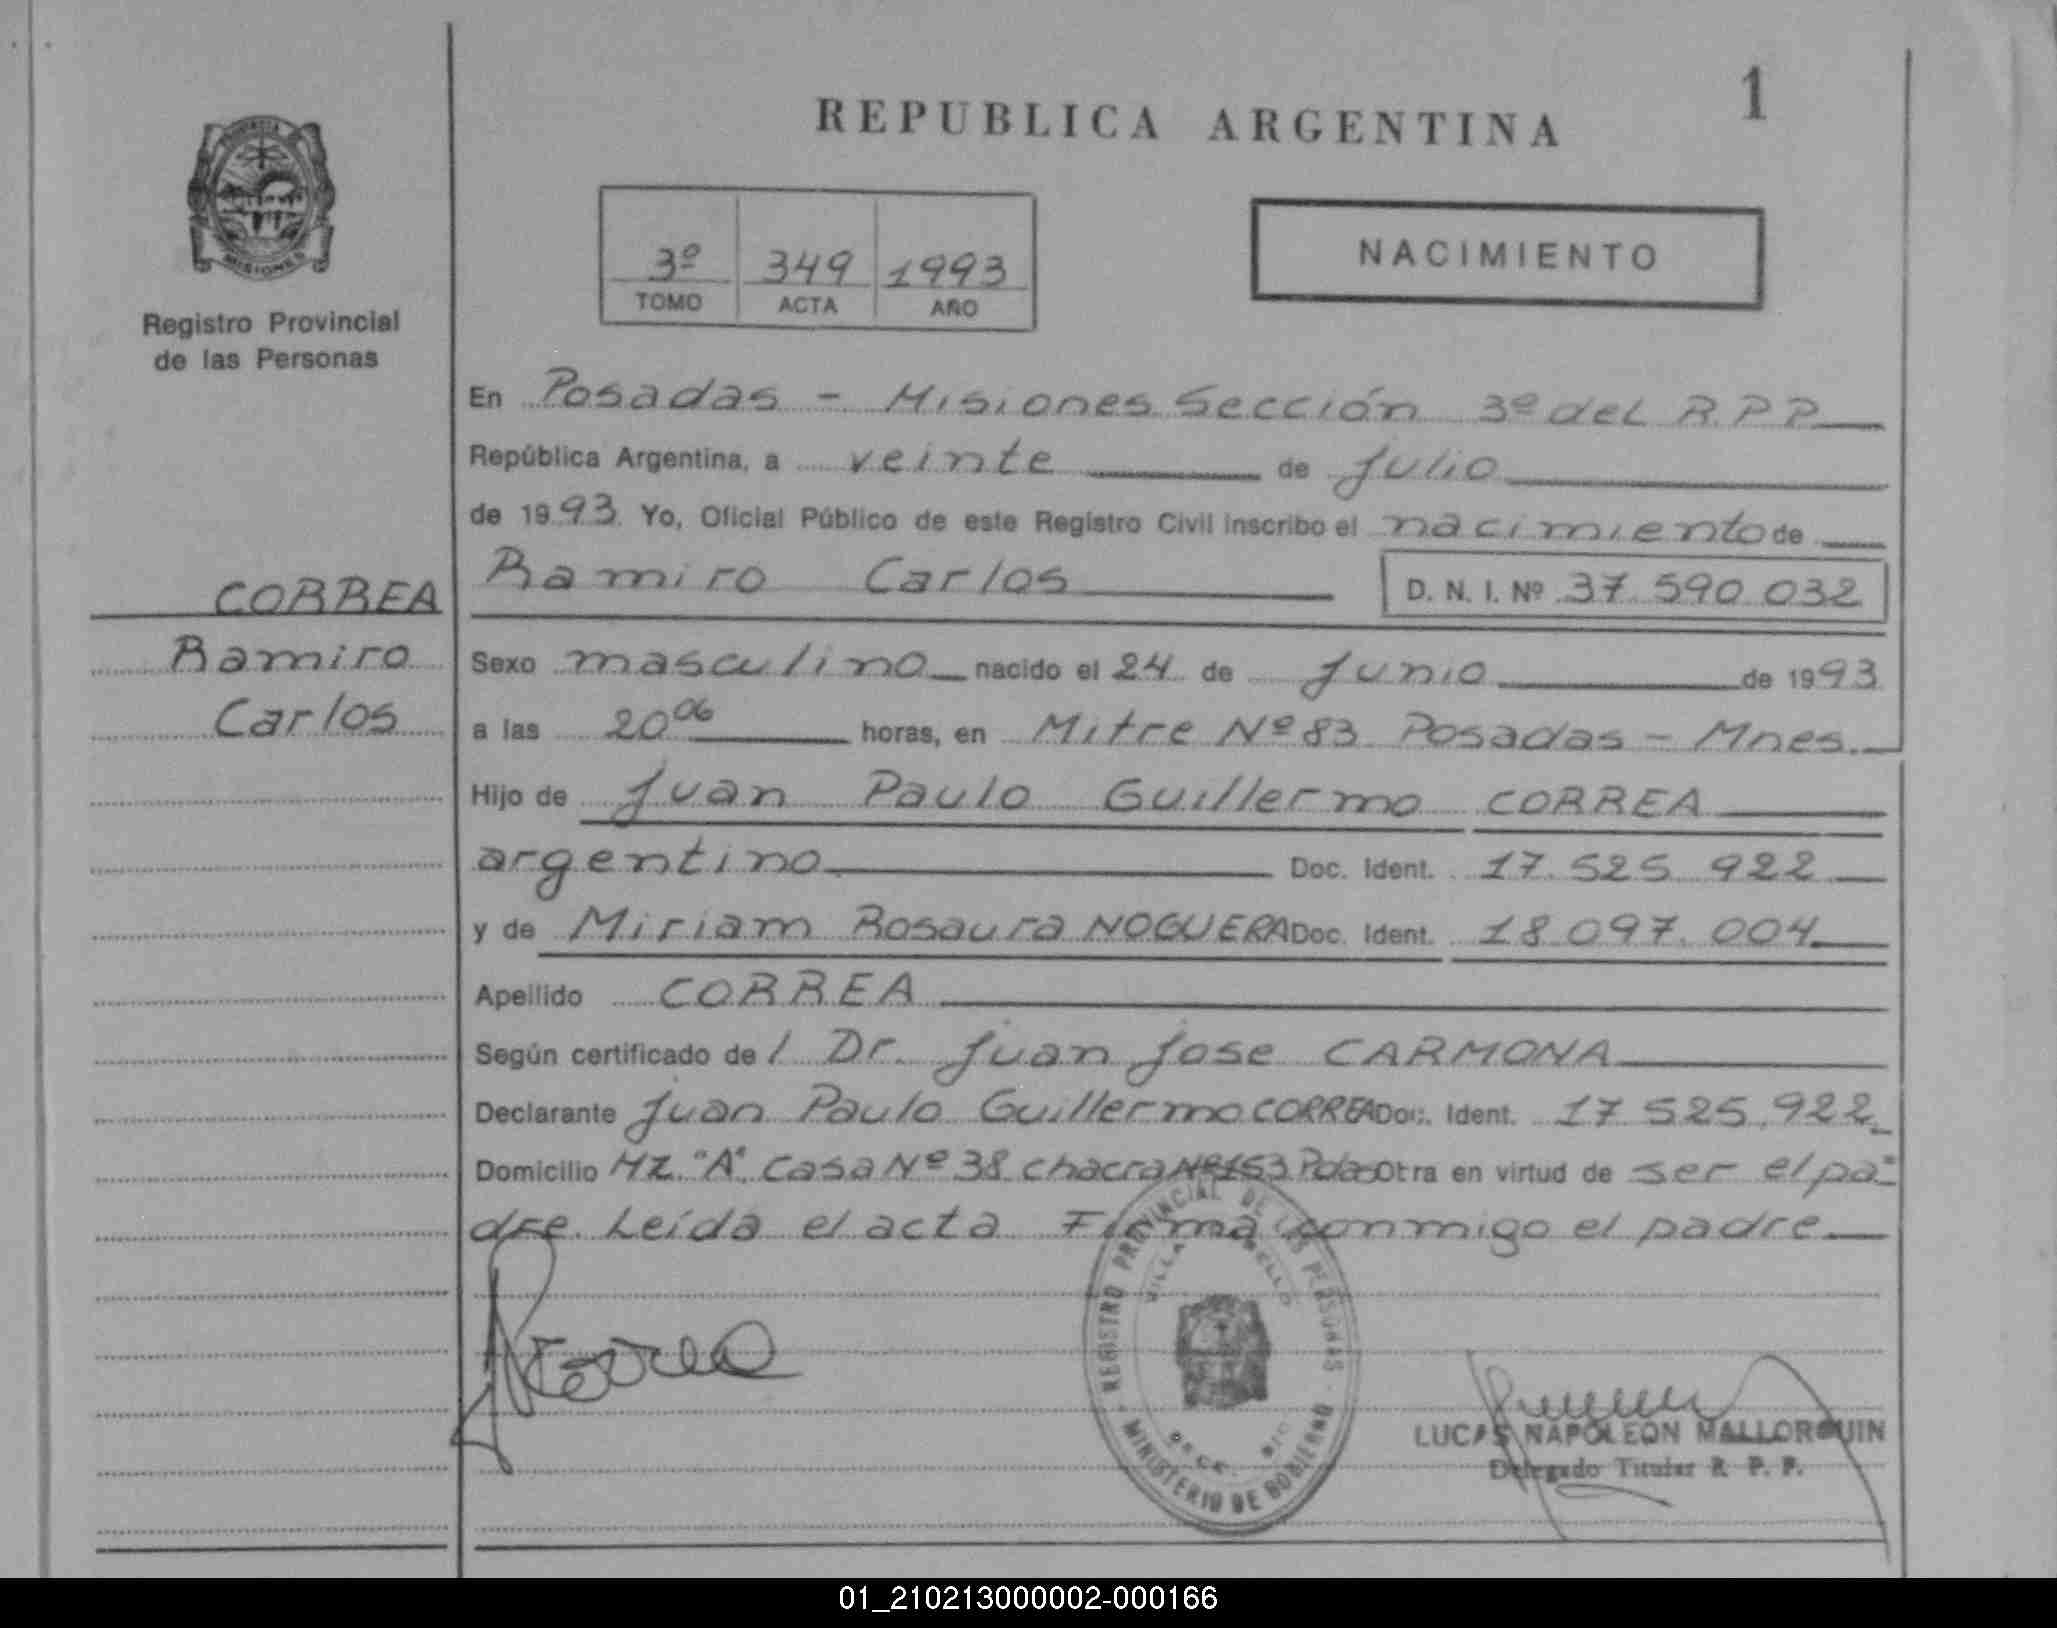 REPUBLICA ARGENTINA
1
PROVINCIA
MISIONES
Registro Provincial
de las Personas
3º 349 1993
TOMO ACTA AÑO
NACIMIENTO
En Posadas - Misiones Sección 3º del R.P.P.
República Argentina, a veinte de Julio
de 1993 Yo, Oficial Público de este Registro Civil inscribo el nacimiento de
CORREA
Ramiro Carlos D. N. I. Nº 37 590 032
Ramiro
Sexo masculino nacido el 24 de Junio de 1993
Carlos
a las 20 06 horas, en Mitre Nº 83 Posadas - Mnes.
Hijo de Juan Paulo Guillermo CORREA
argentino Doc. Ident. 17.525.922
y de Miriam Rosaura NOGUERA Doc. Ident. 18.097.004
Apellido CORREA
Según certificado de / Dr. Juan Jose CARMONA
Declarante Juan Paulo Guillermo CORREA Doc. Ident. 17.525.922
Domicilio Mz. "A" Casa Nº 38 chacra Nº 153 Pdas Otra en virtud de ser el pa=
dre. Leída el acta Firma conmigo el padre
REGISTRO PROVINCIAL DE LAS PERSONAS
VILLA
MINISTERIO DE GOBIERNO
LUCAS NAPOLEON MALLORQUIN
Delegado Titular R. P. P.
01_210213000002-000166